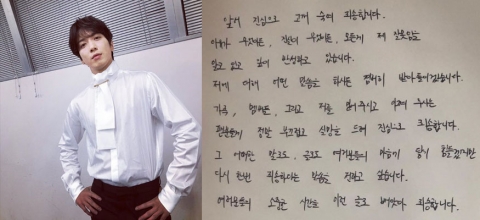 먼저 진심으로 고개 숙여 죄송합니다.
이유가 무엇이든, 진실이 무엇이든, 모든게 제 잘못임을
알고 있고 깊이 반성하고 있습니다.
저에 대해 어떤 말씀을 하시든 겸허히 받아들이겠습니다.
가족, 멤버들, 그리고 저를 믿어주시고 아껴주시는
팬분들께 정말 부끄럽고 실망을 드려 진심으로 죄송합니다.
그 어떠한 말로도, 글로도 여러분들의 마음이 담기 힘들겠지만
다시 한번 죄송하다는 말씀을 전하고 싶습니다.
여러분들의 소중한 시간을 이런 글로 빼앗아 죄송합니다.